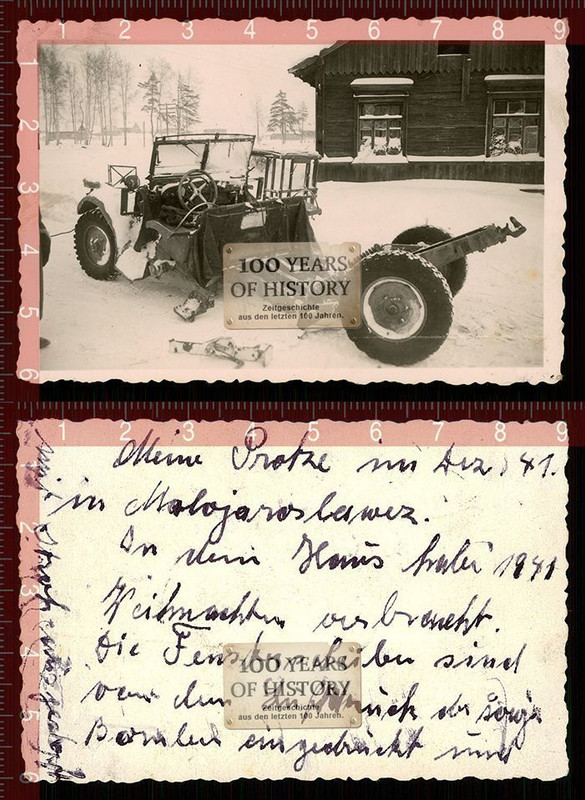 1 2 3 4 5 6 7 8 9
1
2
3
4
5
6
100 YEARS
OF HISTORY
Zeitgeschichte
aus den letzten 100 Jahren.
1 2 3 4 5 6 7 8 9
Meine Protze im Dez. 41.
in Malojaroslawez.
In dem Haus habe 1941
Weihnachten verbracht.
Die Fensterscheiben sind
von dem der sowj.
Bomben eingedrückt und
mit Stroh
100 YEARS
OF HISTORY
Zeitgeschichte
aus den letzten 100 Jahren.